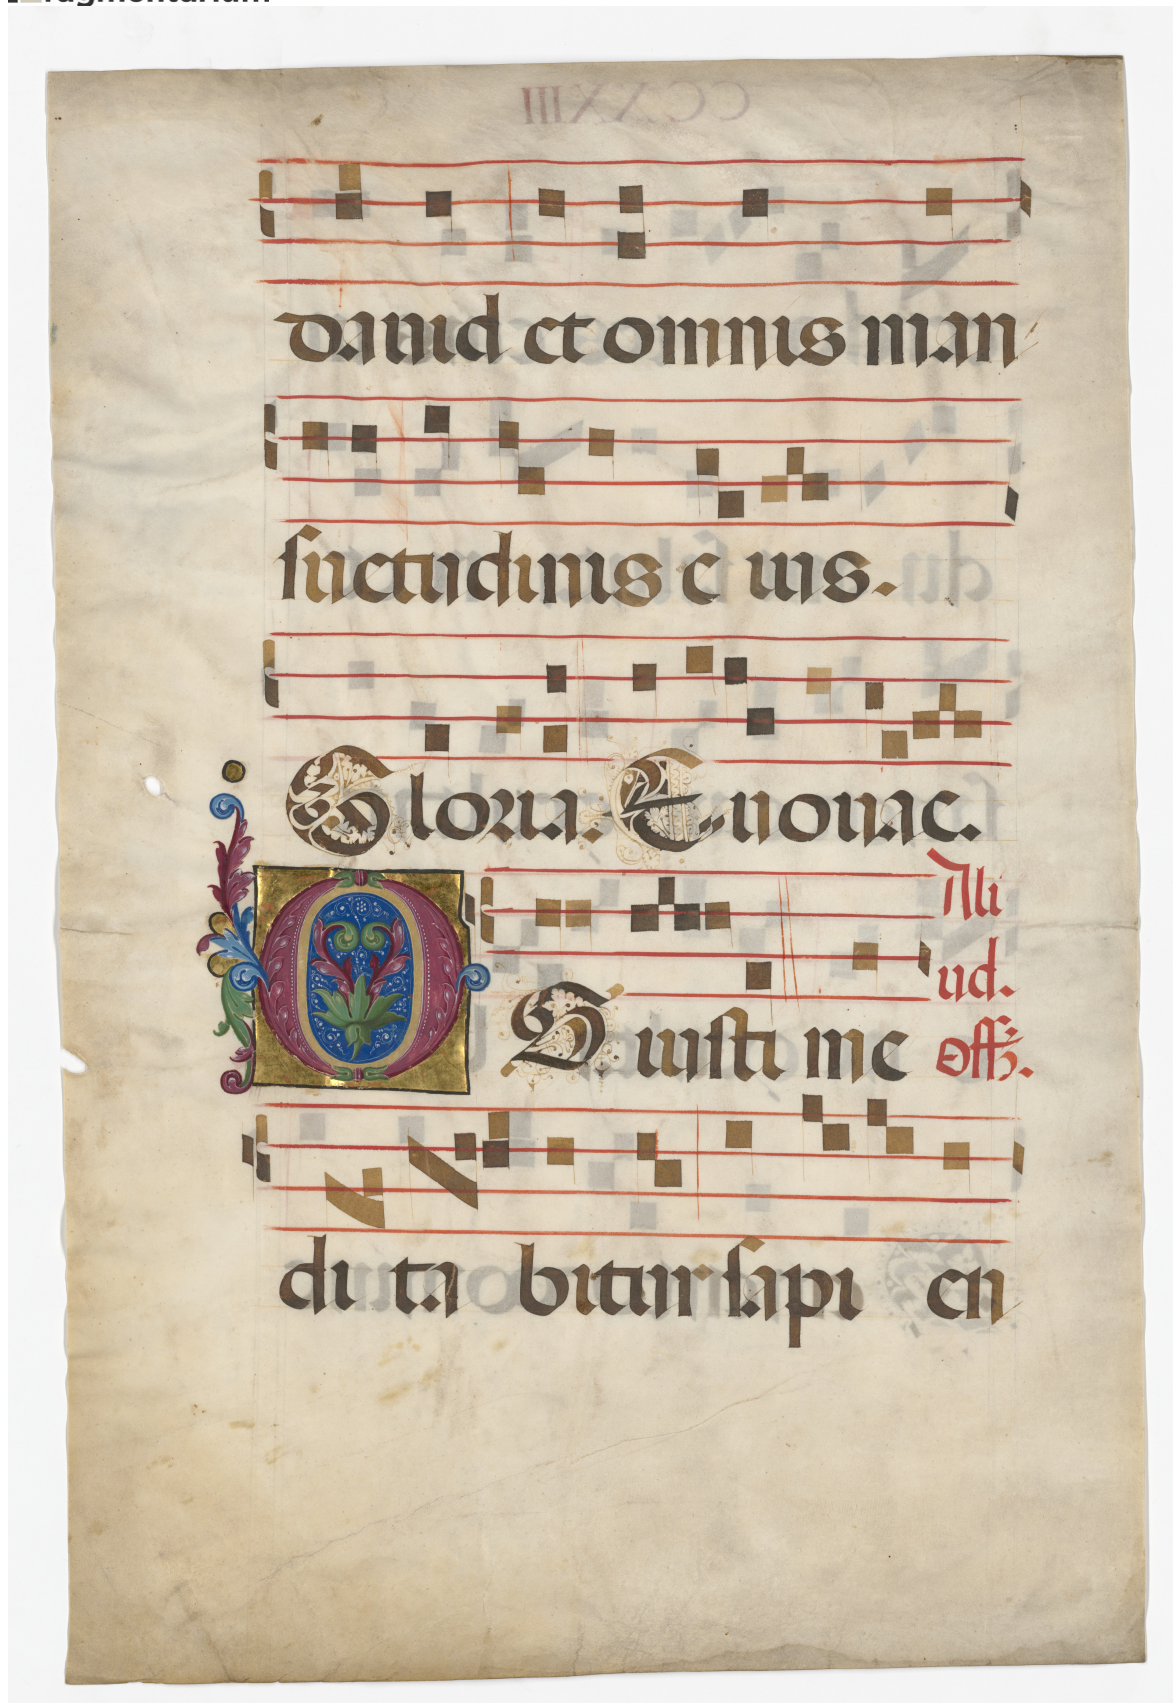 CCXXIII
dauid et omnis man
suetudinis e ius.
Gloria. Euouae.
Ali
ud.
OS iusti me
di ta bitur sapi en